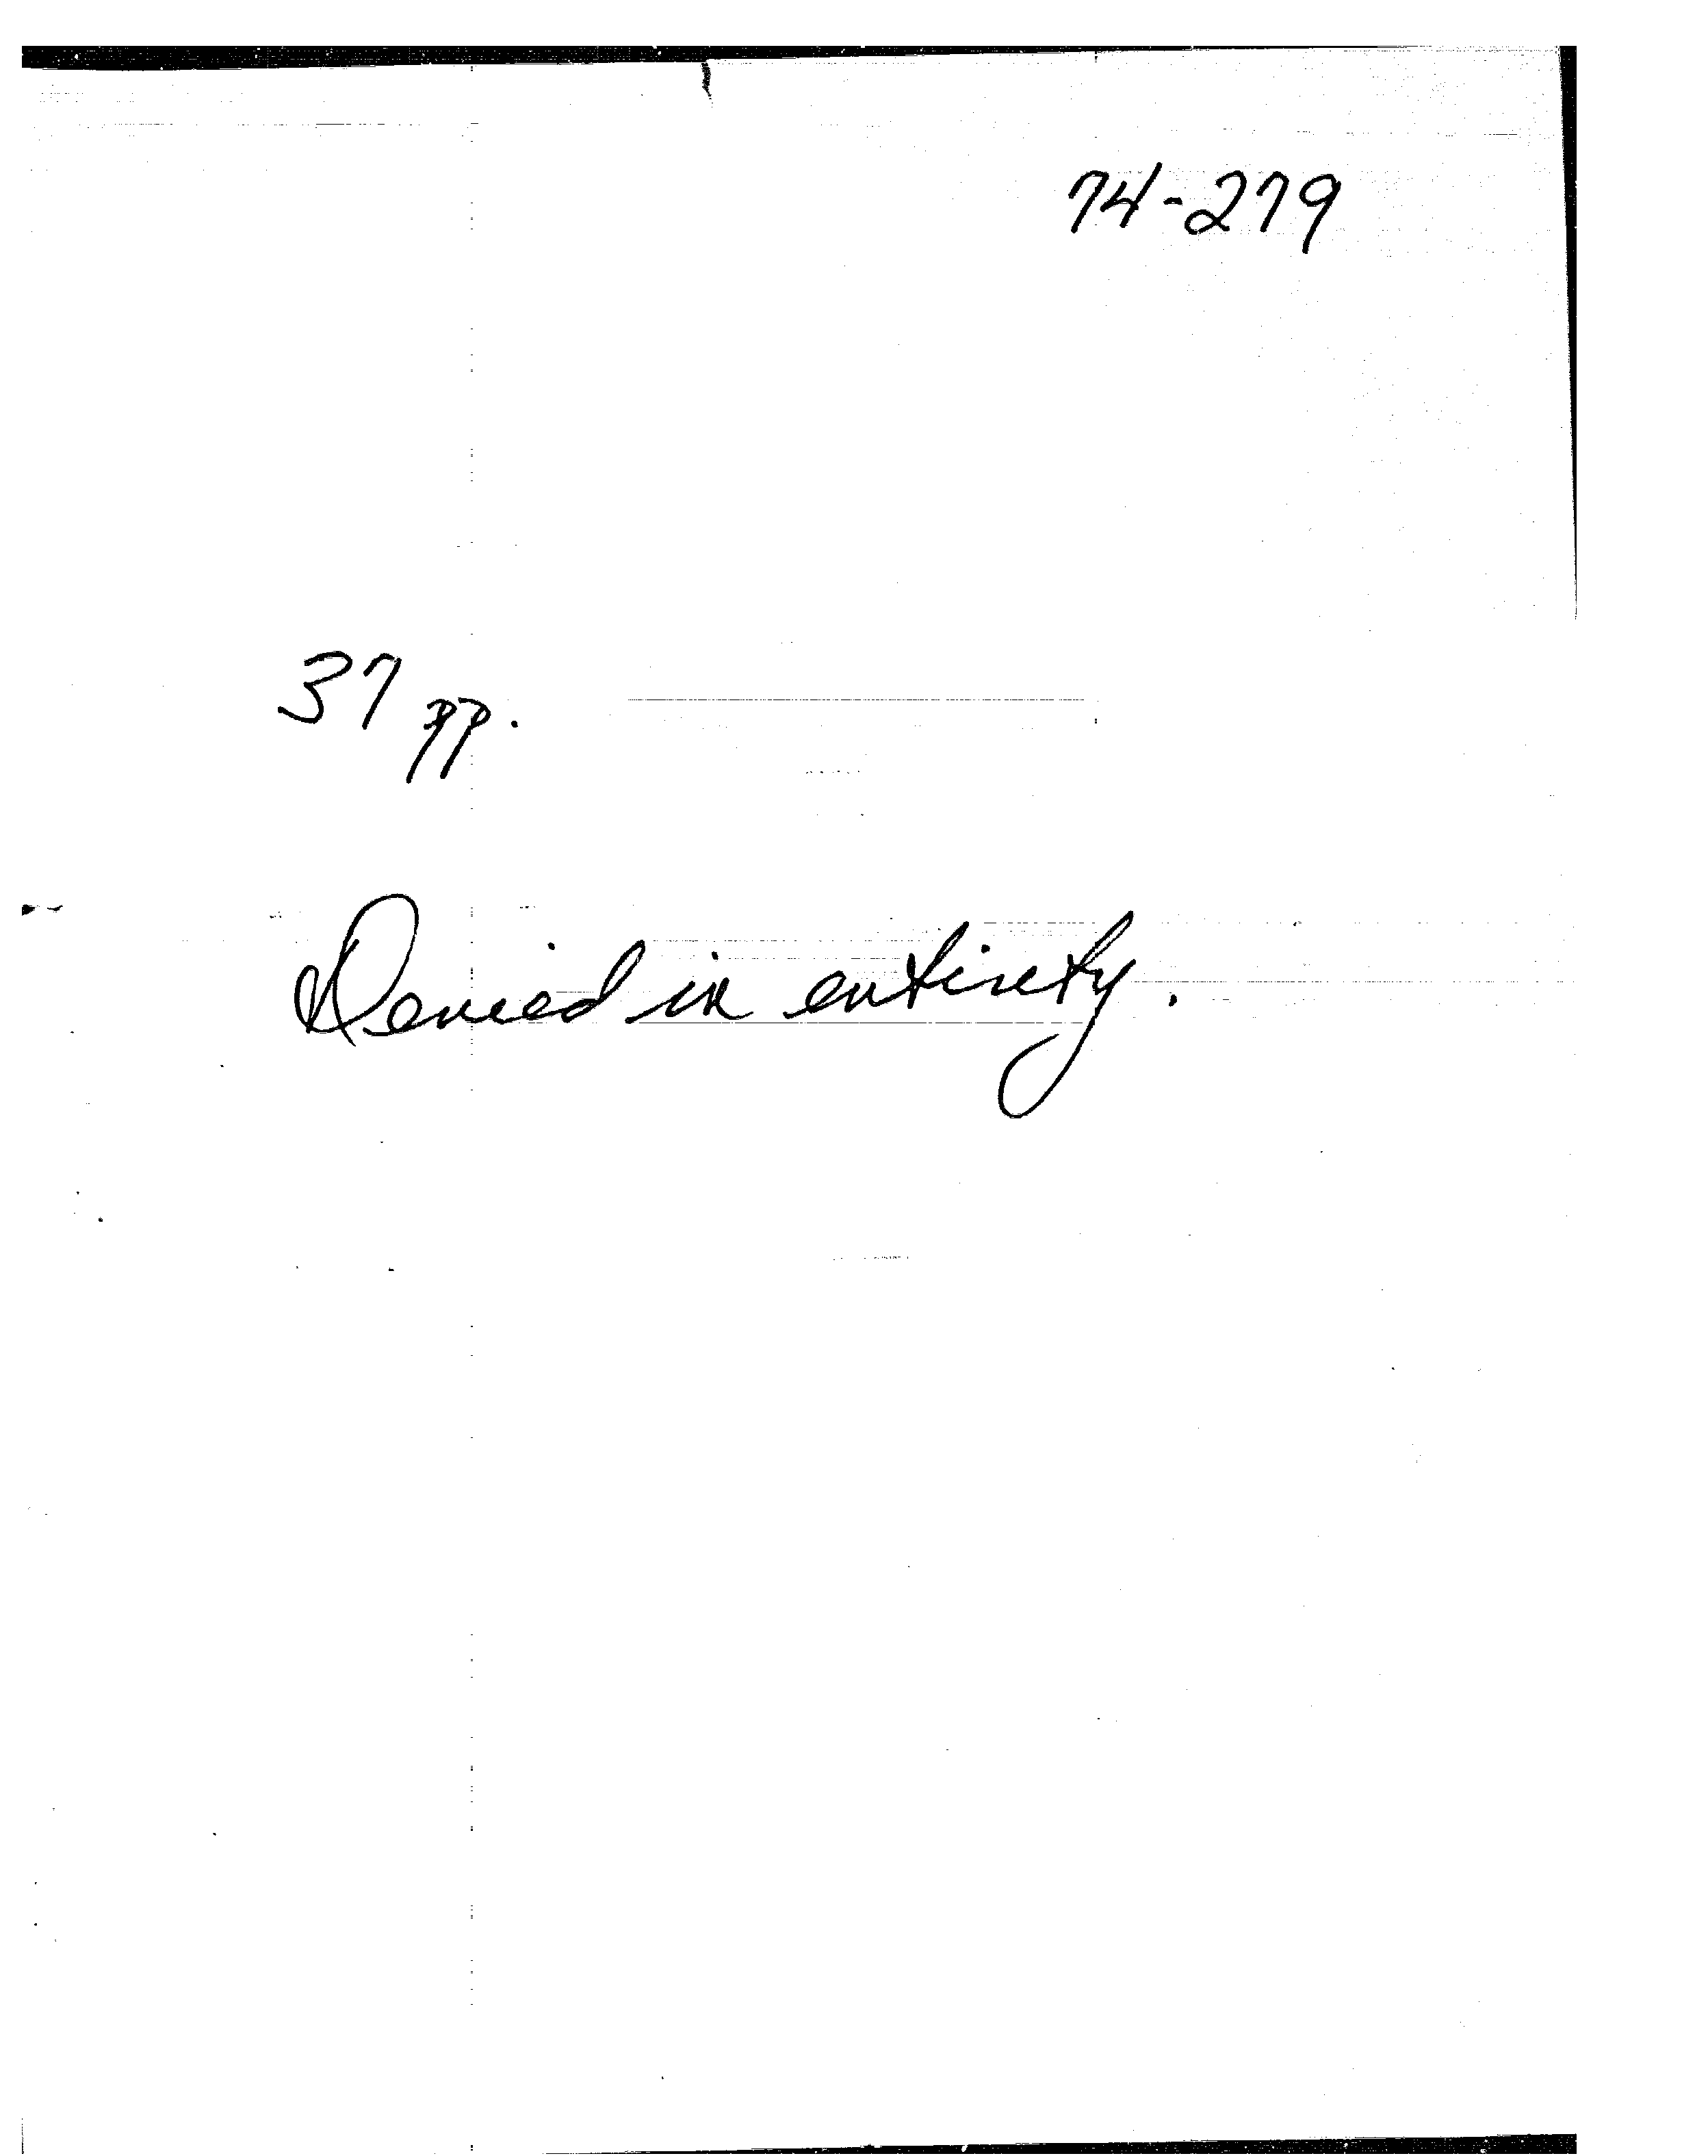 74-279
37 pp.
Denied in entirety.